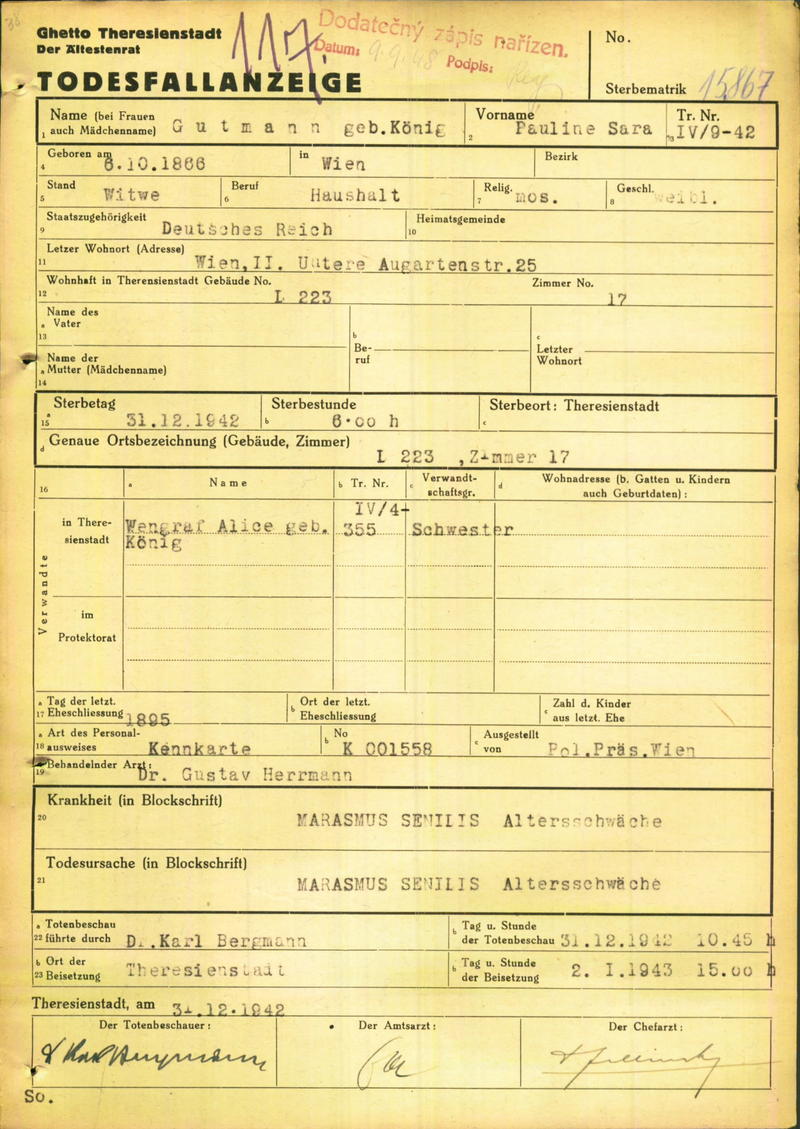 Ghetto Theresienstadt
Der Ältestenrat
Dodatečný zápis nařízen.
Datum: 9.9.48
Podpis:
No.
TODESFALLANZEIGE
Sterbematrik 15867
Name (bei Frauen
1 auch Mädchenname) Gutmann geb.König
Vorname
2 Pauline Sara
Tr. Nr.
3 IV/9-42
4 Geboren am 6.10.1866
in Wien
Bezirk
5 Stand Witwe
6 Beruf Haushalt
7 Relig. mos.
8 Geschl. weibl.
9 Staatszugehörigkeit Deutsches Reich
10 Heimatsgemeinde
11 Letzer Wohnort (Adresse)
Wien,II. Untere Augartenstr.25
12 Wohnhaft in Theresienstadt Gebäude No. L 223
Zimmer No. 17
Name des
a Vater
13
b Be-
ruf
c Letzter
Wohnort
Name der
a Mutter (Mädchenname)
14
15 a Sterbetag 31.12.1942
b Sterbestunde 6.00 h
c Sterbeort: Theresienstadt
d Genaue Ortsbezeichnung (Gebäude, Zimmer)
L 223 ,Zimmer 17
16 a Name
b Tr. Nr.
c Verwandt-
schaftsgr.
d Wohnadresse (b. Gatten u. Kindern
auch Geburtdaten) :
Verwandte
in There-
sienstadt
Wengraf Alice geb.
König
IV/4-
355
Schwester
im
Protektorat
a Tag der letzt.
17 Eheschliessung 1895
b Ort der letzt.
Eheschliessung
c Zahl d. Kinder
aus letzt. Ehe
a Art des Personal-
18 ausweises Kennkarte
b No K 001558
c Ausgestellt
von Pol.Präs.Wien
19 Behandelnder Arzt:
Dr. Gustav Herrmann
Krankheit (in Blockschrift)
20 MARASMUS SENILIS Altersschwäche
Todesursache (in Blockschrift)
21 MARASMUS SENILIS Altersschwäche
a Totenbeschau
22 führte durch Dr.Karl Bergmann
b Tag u. Stunde
der Totenbeschau 31.12.1942 10.45 h
b Ort der
23 Beisetzung Theresienstadt
b Tag u. Stunde
der Beisetzung 2. I.1943 15.00 h
Theresienstadt, am 31.12.1942
Der Totenbeschauer :
Der Amtsarzt :
Der Chefarzt :
So.